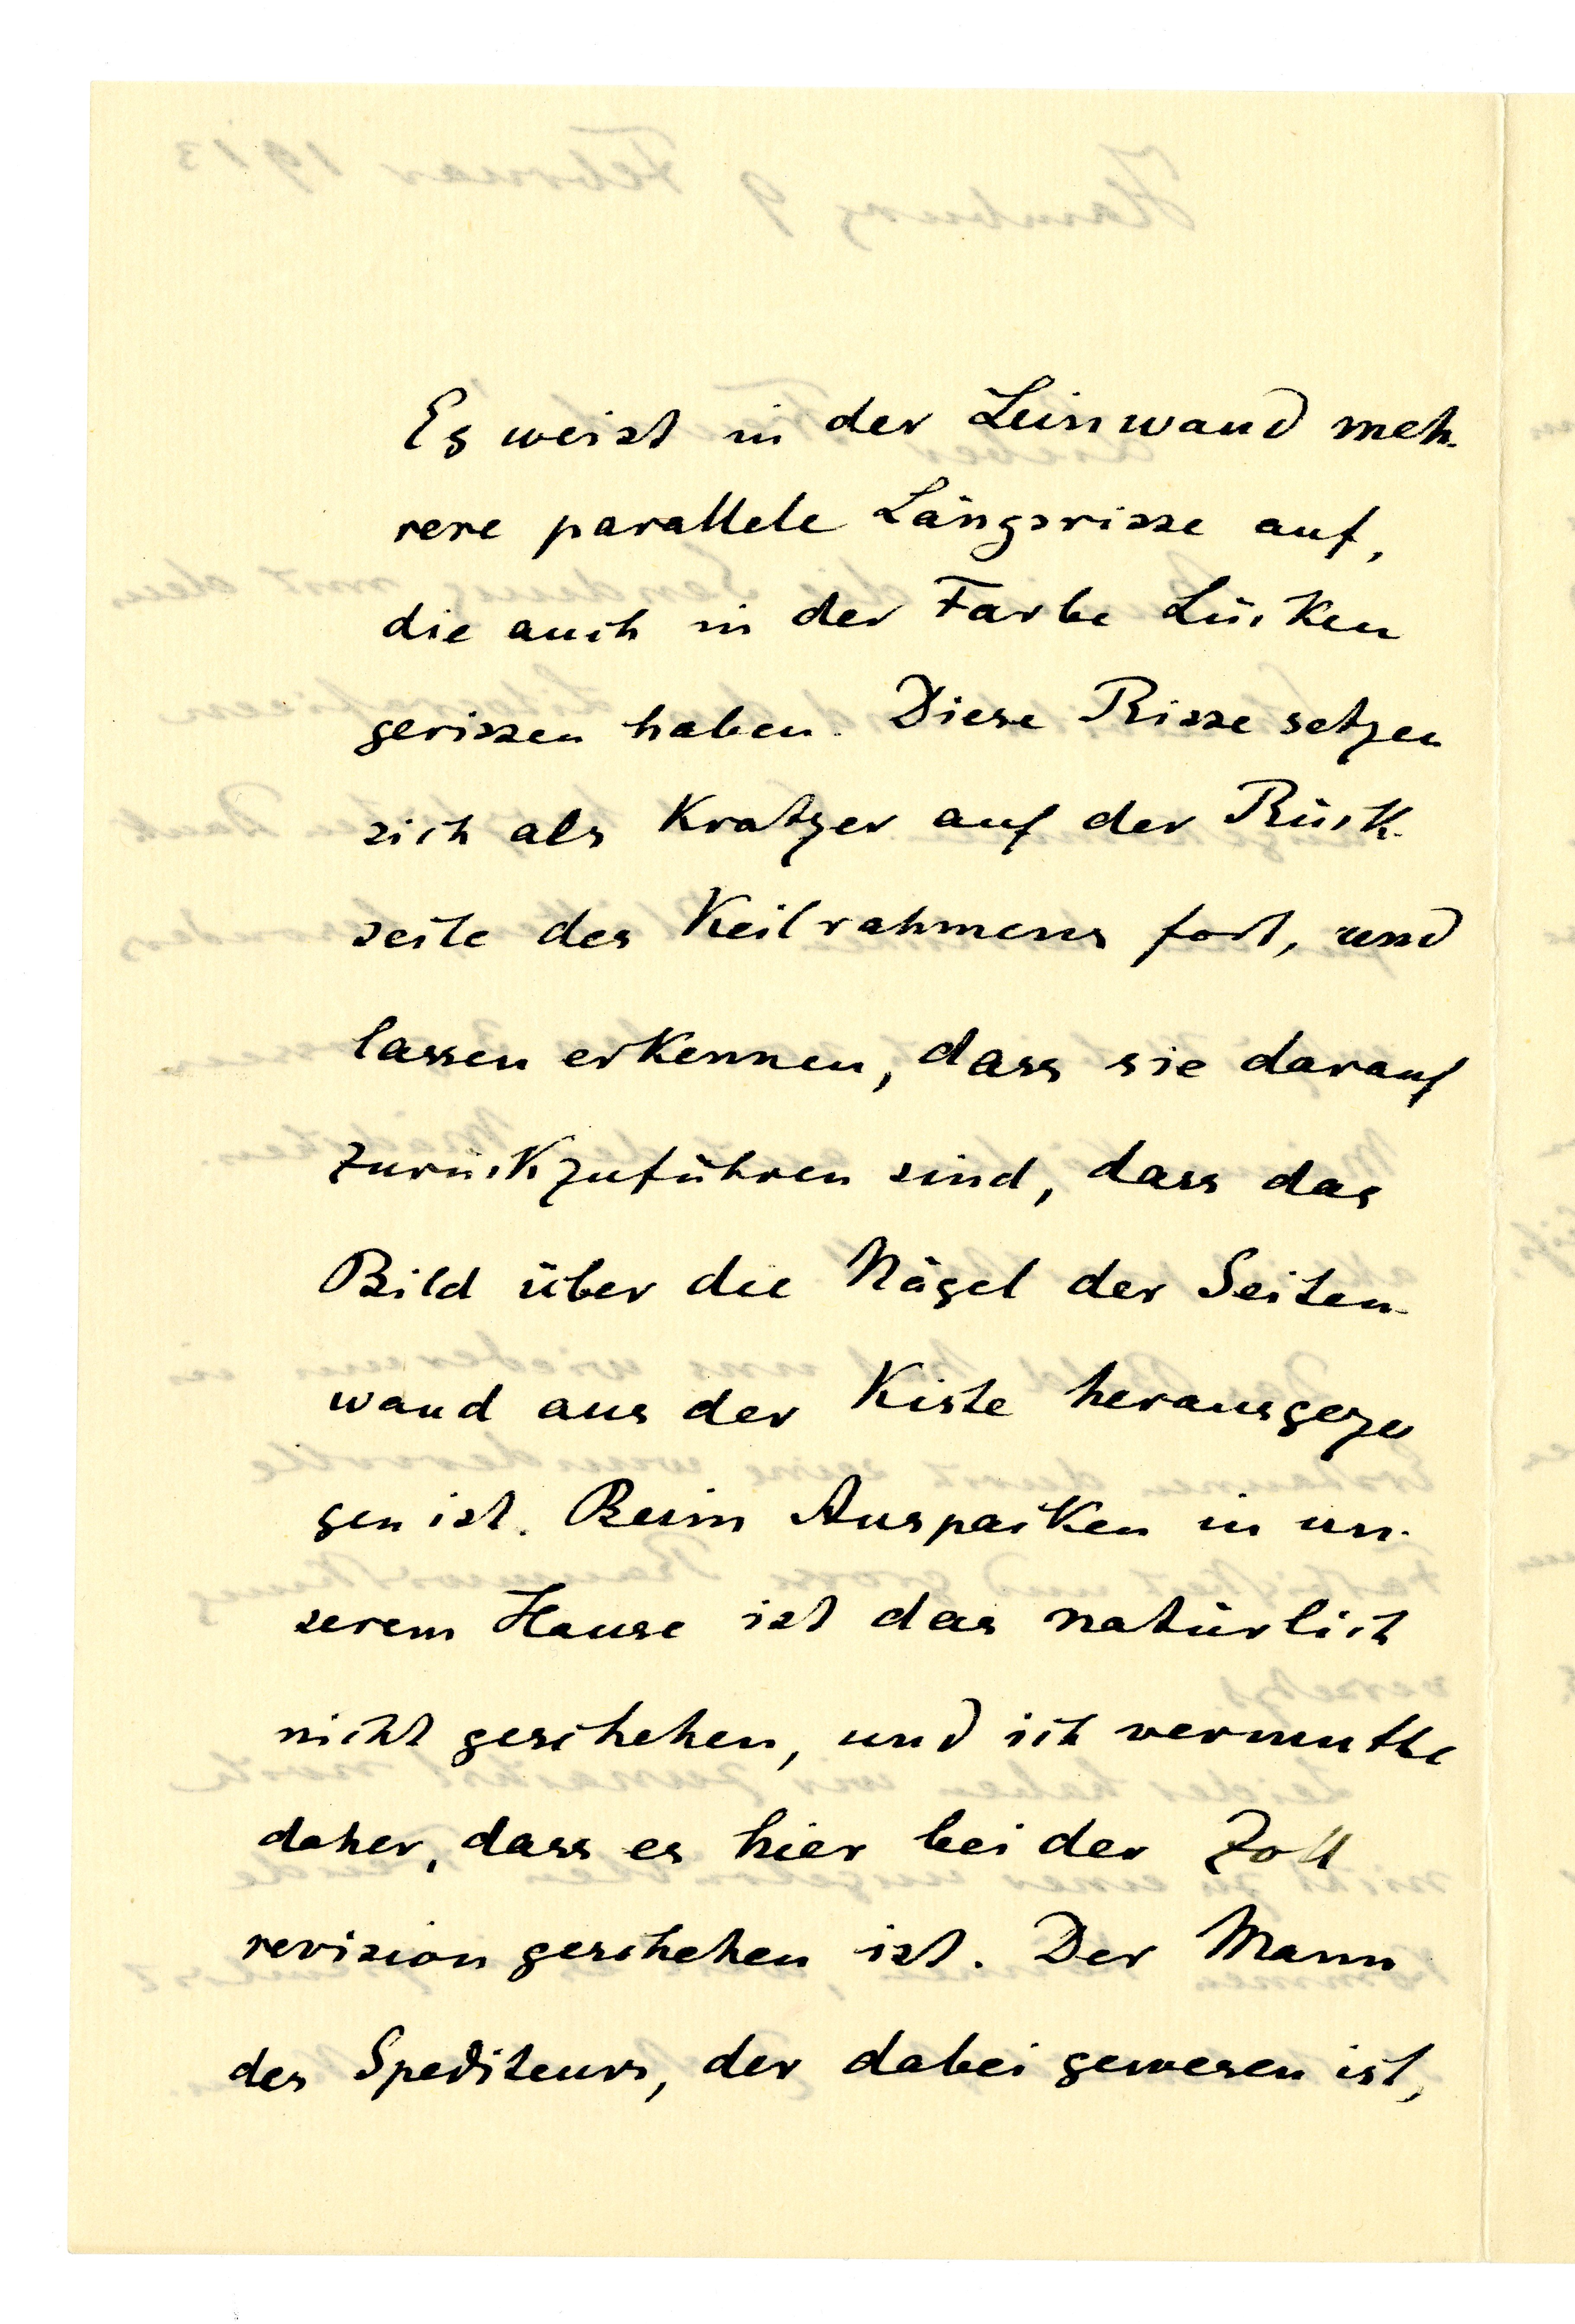 Es weist in der Leinwand meh-
rere parallele Längsrisse auf,
die auch in der Farbe Lücken
gerissen haben. Diese Risse setzen
sich als Kratzer auf der Rück-
seite des Keilrahmens fort, und
lassen erkennen, dass sie darauf
zurückzuführen sind, dass das
Bild über die Nägel der Seiten-
wand aus der Kiste herausgezo
gen ist. Beim Auspacken in un-
serem Hause ist das natürlich
nicht geschehen, und ich vermuthe
daher, dass es hier bei der Zoll
revision geschehen ist. Der Mann
des Spediteurs, der dabei gewesen ist,